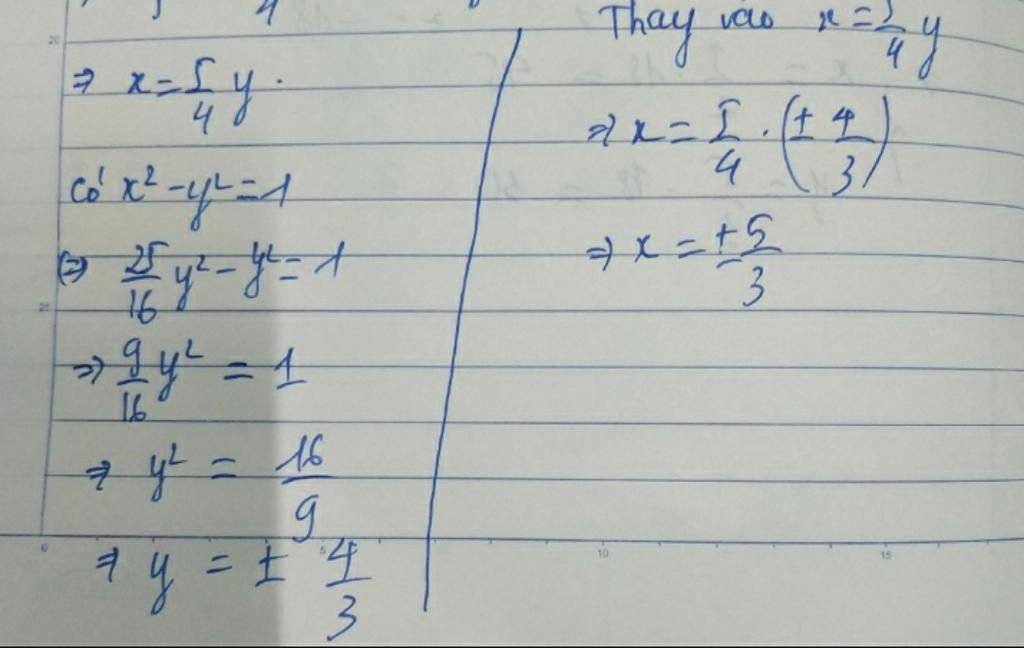 4
⇒ x = 5/4 y.
Có x² - y² = 1
(⇒ 25/16 y² - y² = 1
⇒ 9/16 y² = 1
⇒ y² = 16/9
⇒ y = ± 4/3
Thay vào x = 5/4 y
⇒ x = 5/4 . (± 4/3)
⇒ x = ± 5/3
20
25
0
5
10
15